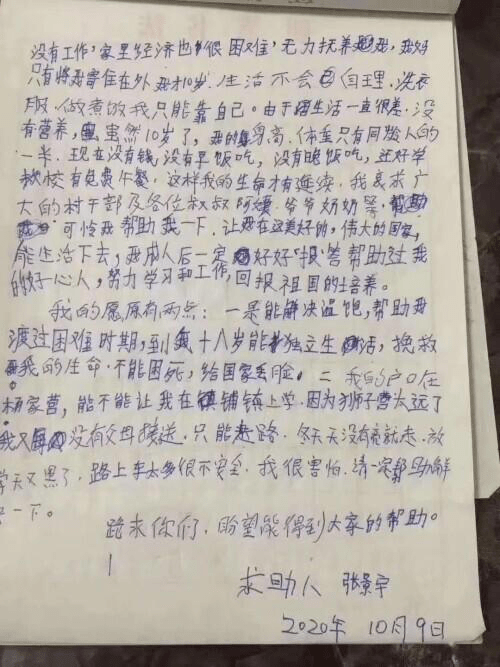 没有工作,家里经济也很困难,无力抚养我,我妈
只有将我寄住在外我才10岁.生活不会自理.洗衣
服.做煮饭我只能靠自己。由于生活一直很差.没
有营养,虽然10岁了,我的身高.体重只有同龄人的
一半.现在没有钱,没有早饭吃,没有晚饭吃,还好学
校有免费午餐,这样我的生命才有连续.我哀求广
大的村干部及各位叔叔阿姨.爷爷奶奶等,
可怜我帮助我一下.让我在这美好的,伟大的国家,
能生活下去,我成人后一定好好报答帮助过我
的好心人,努力学习和工作,回报祖国的培养。
我的愿原有两点:一是能解决温饱,帮助我
渡过困难时期,到我十八岁能独立生活,挽救
我的生命.不能困死,给国家丢脸。二我的户口在
杨家营,能不能让我在镇铺镇上学.因为狮子营太远了
我又没有父母接送.只能赶路.冬天天没有亮就走.放
学天又黑了,路上车太多很不安全.我很害怕.请一定帮助解
一下。
跪求你们,盼望能得到大家的帮助。
求助人 张景宇
2020年 10月9日